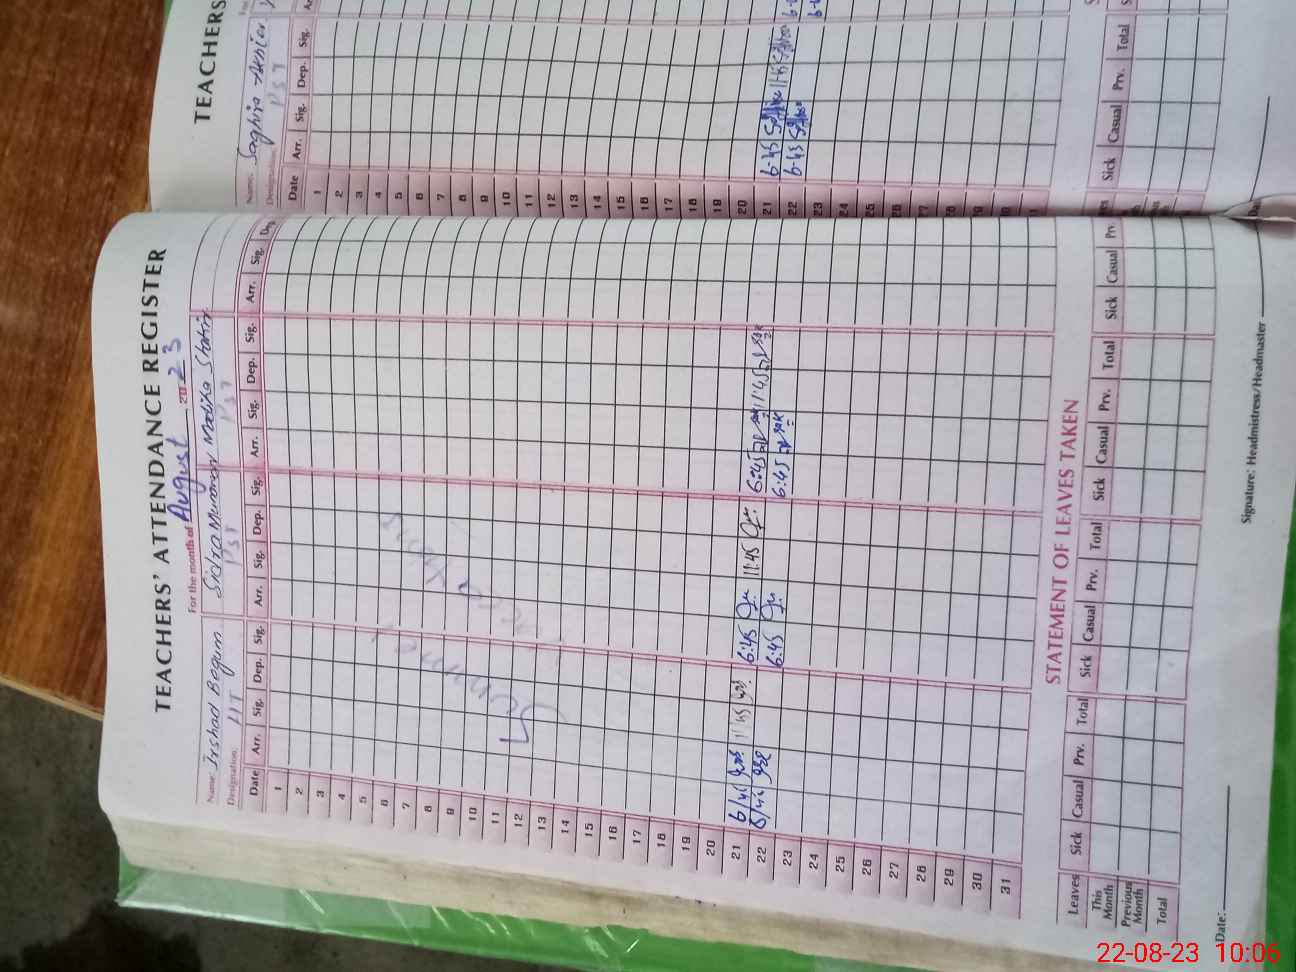 TEACHERS' ATTENDANCE REGISTER
For the month of August 2023
Name: Irshad Begum Sidra Memoon Madiha Shakir
Designation: HT PST PST
Date Arr. Sig. Dep. Sig. Arr. Sig. Dep. Sig. Arr. Sig. Dep. Sig. Arr. Sig. Dep.
1
2
3
4
5
6
7
8
9
10
11
12
13
14
15
16
17
18
19
20
21 6:45 11:45 6:45 11:45
22 6:45 6:45
23
24
25
26
27
28
29
30
31
Summer Vacations
STATEMENT OF LEAVES TAKEN
Leaves Sick Casual Prv. Total Sick Casual Prv. Total Sick Casual Prv. Total Sick Casual Prv.
This Month
Previous Month
Total
Date: Signature: Headmistress/Headmaster
TEACHERS
Name: Saghira Akhter
Designation: PST
Date Arr. Sig. Dep. Sig.
1
2
3
4
5
6
7
8
9
10
11
12
13
14
15
16
17
18
19
20
21 6-45 11-45
22 6-45
23
24
25
26
27
28
29
30
Sick Casual Prv. Total
22-08-23 10:06